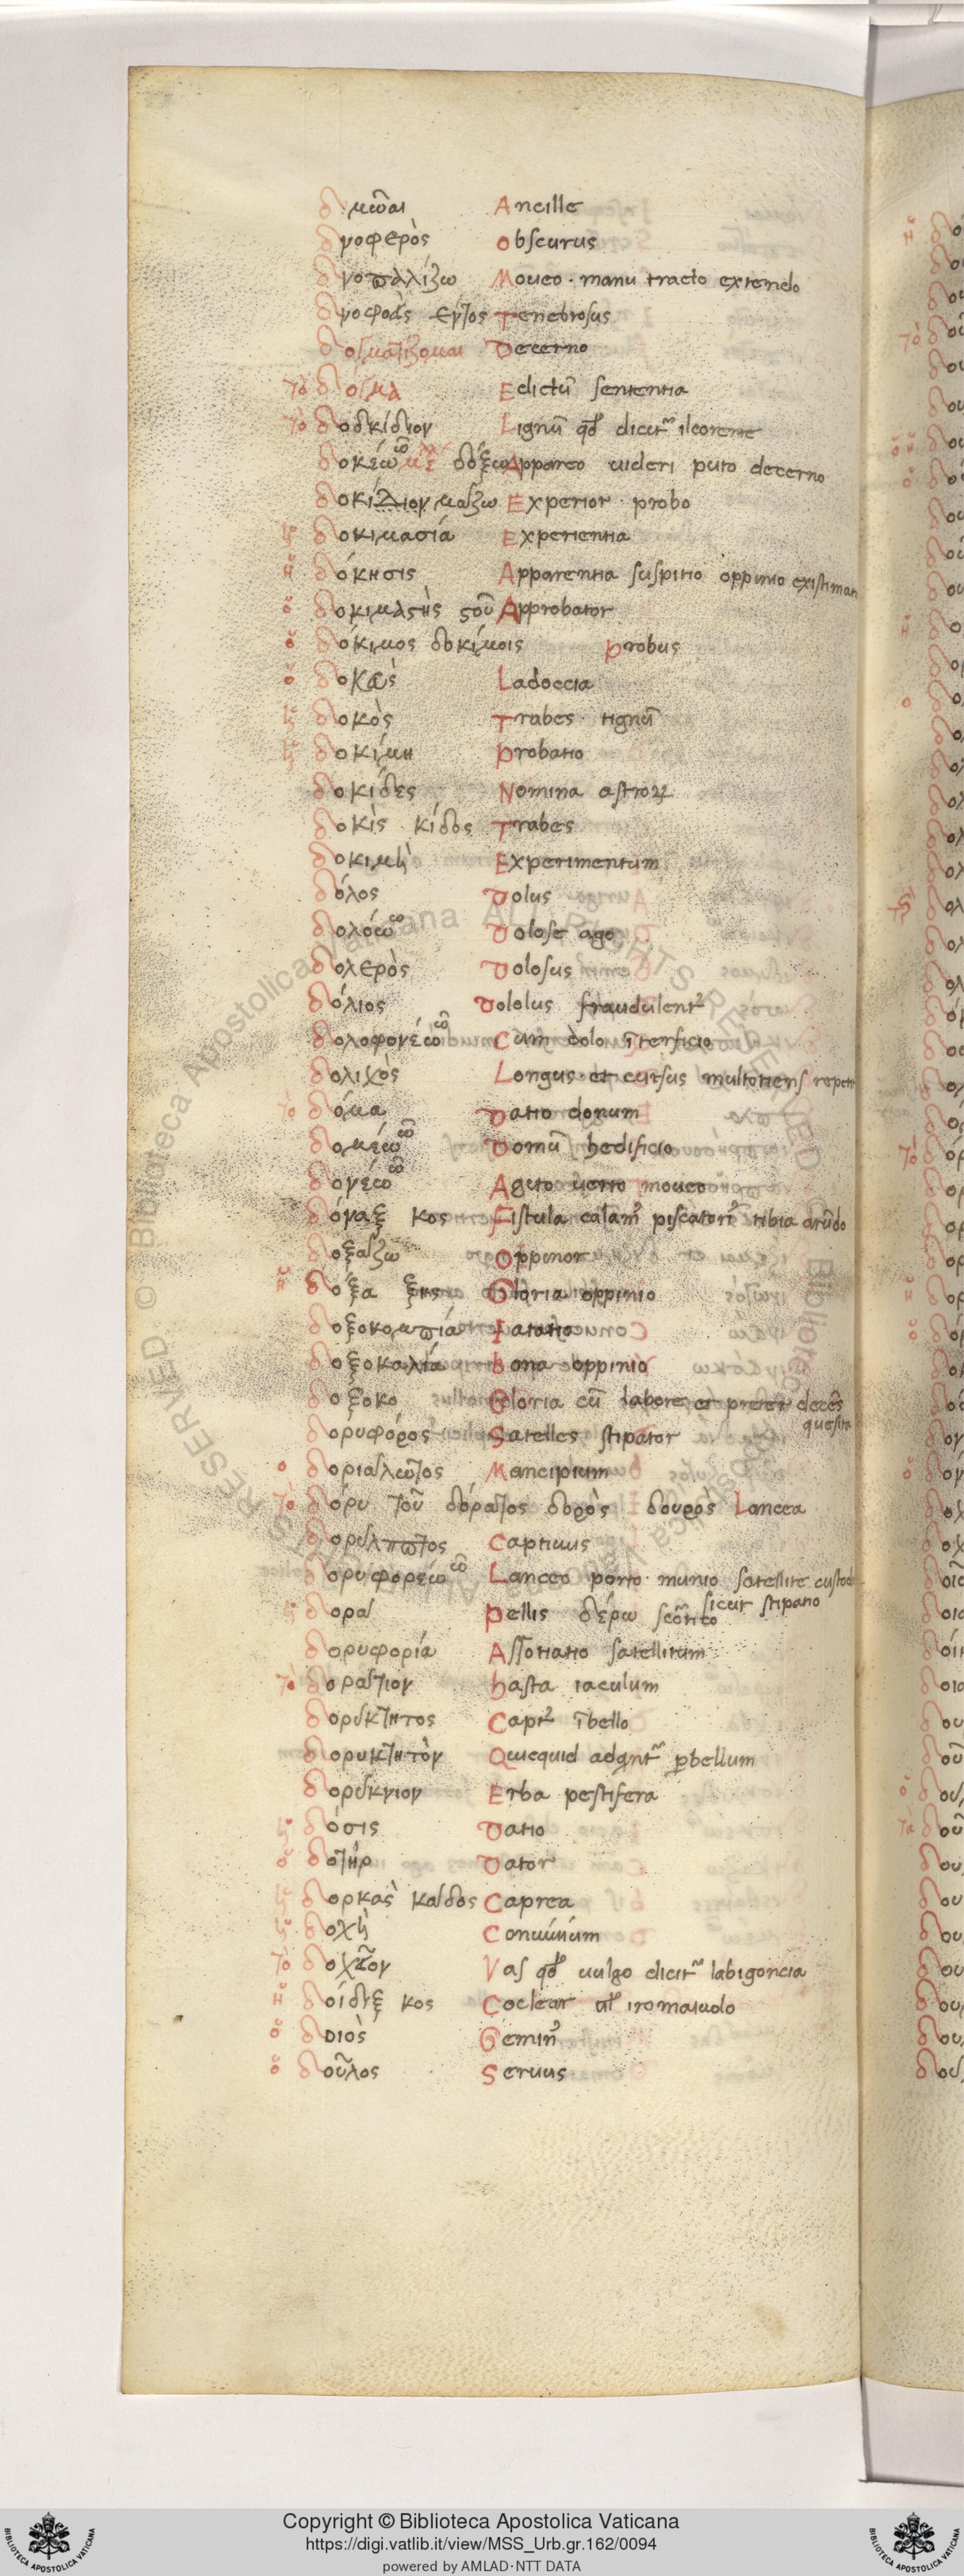 δμῶαι Ancille
δνοφερὸς obscurus
δνοπαλίζω Moueo · manu tracto extendo
δνοφὰς εντος Tenebrosus
δογματίζομαι Decerno
τὸ δόγμα Edictū sententia
τὸ δοδκίδιον Lignū qd̄ dicit᷑
δοκέω ῶ δόξω Appareo uideri puto decerno
δοκι μάζω Experior · probo
ἡ δοκιμασία Experientia
ἡ δόκησις Apparentia suspitio oppinio
ὁ δοκιμαστὴς στοῦ Approbator
ὁ δόκιμος δοκίμοις probus
ὁ Ladoccia
ἡ δοκὸς Trabes · tignū
ἡ δοκίμη probatio
δοκίδες Nomina astroꝝ
δοκὶς · κίδος Trabes
δοκιμὴ Experimentum
δόλος Dolus
δολόω ῶ Dolose ago
δολερὸς Dolosus
δόλιος Dololus fraudulentꝰ
δολοφονέω ῶ Cum dolo īterficio
δολιχὸς Longus · et cursus multotiens
τὸ δόμα Datio donum
δομέω ῶ Domū hedificio
δονέω ῶ Agito uerto moueo
δόναξ κος Fistula calamꝰ piscatoriꝰ tibia arūdo
δοξάζω Oppinor
ἡ δόξα ξης Gloria oppinio
δοξοκοπία Iatatio
δοξοκαλία bona oppinio
δοξοκο Gloria cū labore et preter decēs
quesita
δορυφόρος Satelles stipator
ὁ δοριάλωτος Mancipium
τὸ δόρυ τοῦ δόρατος δορὸς δουρός Lancea
Captiuus
δορυφορέω ῶ Lanceo porto · munio satellite
sicut stipatio
ἡ δορά pellis δέρω
δορυφορία Assotiatio satellitum
τὸ δοράτιον hasta iaculum
δορύκτητος Captꝰ ī bello
δορυκτητὸν Quicquid adqrnt᷑ ꝑbellum
δορύκνιον Erba pestifera
ἡ δόσις Datio
ὁ δοτὴρ Dator
ἡ δορκὰς κάδος Caprea
ἡ δοχὴ Conuiuium
τὸ δοχεῖον Vas qd̄ uulgo dicit᷑ labigoncia
ἡ δοίδυξ κος Coclear ul̄ iromaiuolo
ὁ δοιὸς Geminꝰ
ὁ δοῦλος Seruus
Copyright © Biblioteca Apostolica Vaticana
https://digi.vatlib.it/view/MSS_Urb.gr.162/0094
powered by AMLAD · NTT DATA